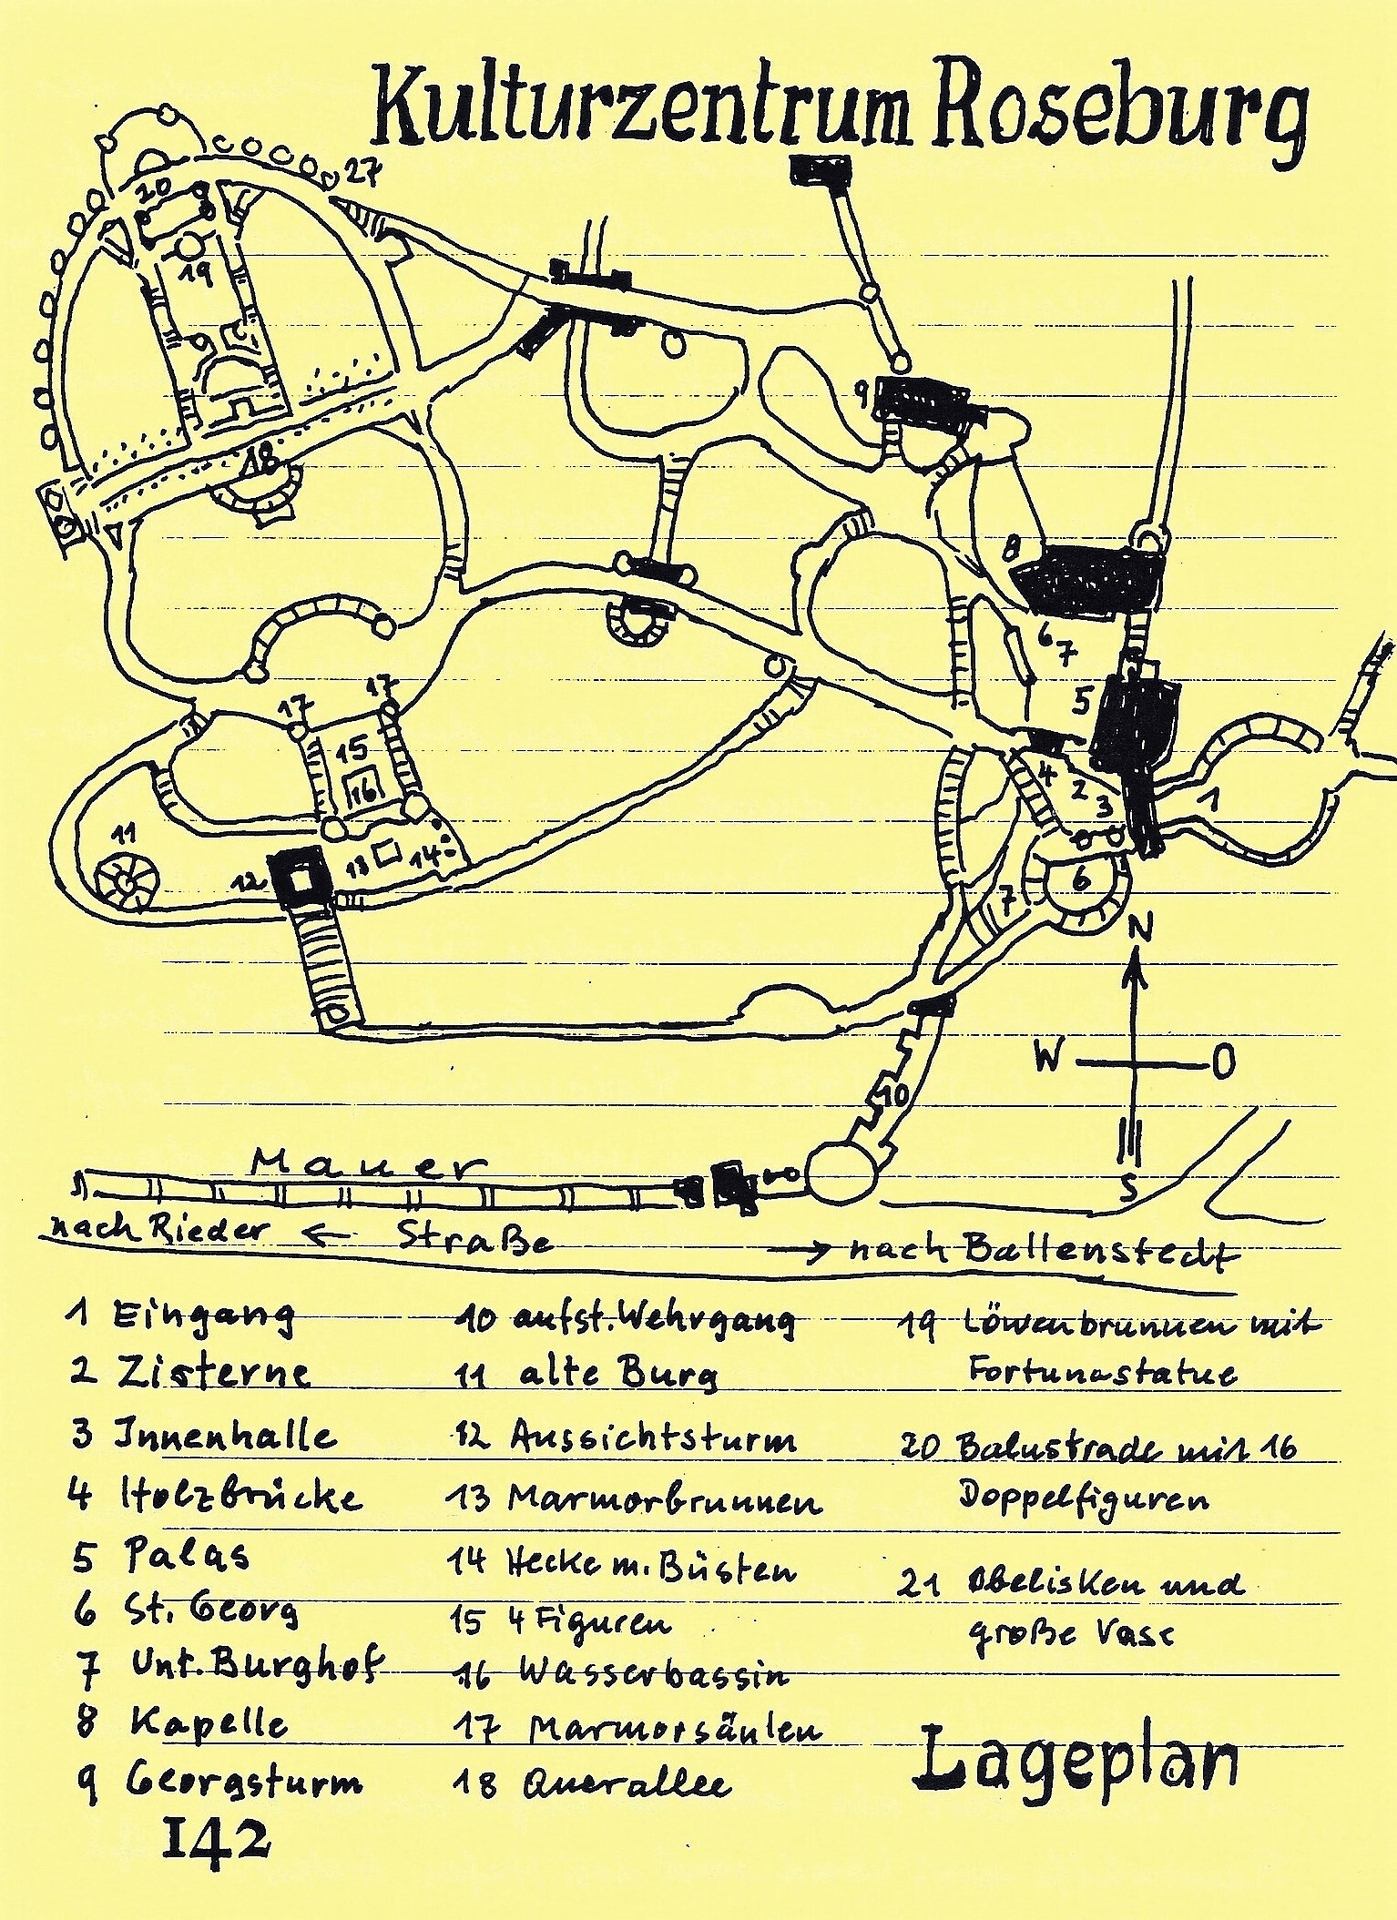 Kulturzentrum Roseburg
27
20
19
9
18
8
6
7
17
17
5
15
4
16
2
1
3
11
13
14
12
6
7
N
W O
10
S
Mauer
nach Rieder ← Straße → nach Ballenstedt
1 Eingang
2 Zisterne
3 Innenhalle
4 Holzbrücke
5 Palas
6 St. Georg
7 Unt. Burghof
8 Kapelle
9 Georgsturm
10 aufst. Wehrgang
11 alte Burg
12 Aussichtsturm
13 Marmorbrunnen
14 Hecke m. Büsten
15 4 Figuren
16 Wasserbassin
17 Marmorsäulen
18 Querallee
19 Löwenbrunnen mit
Fortunastatue
20 Balustrade mit 16
Doppelfiguren
21 Obelisken und
große Vase
Lageplan
142